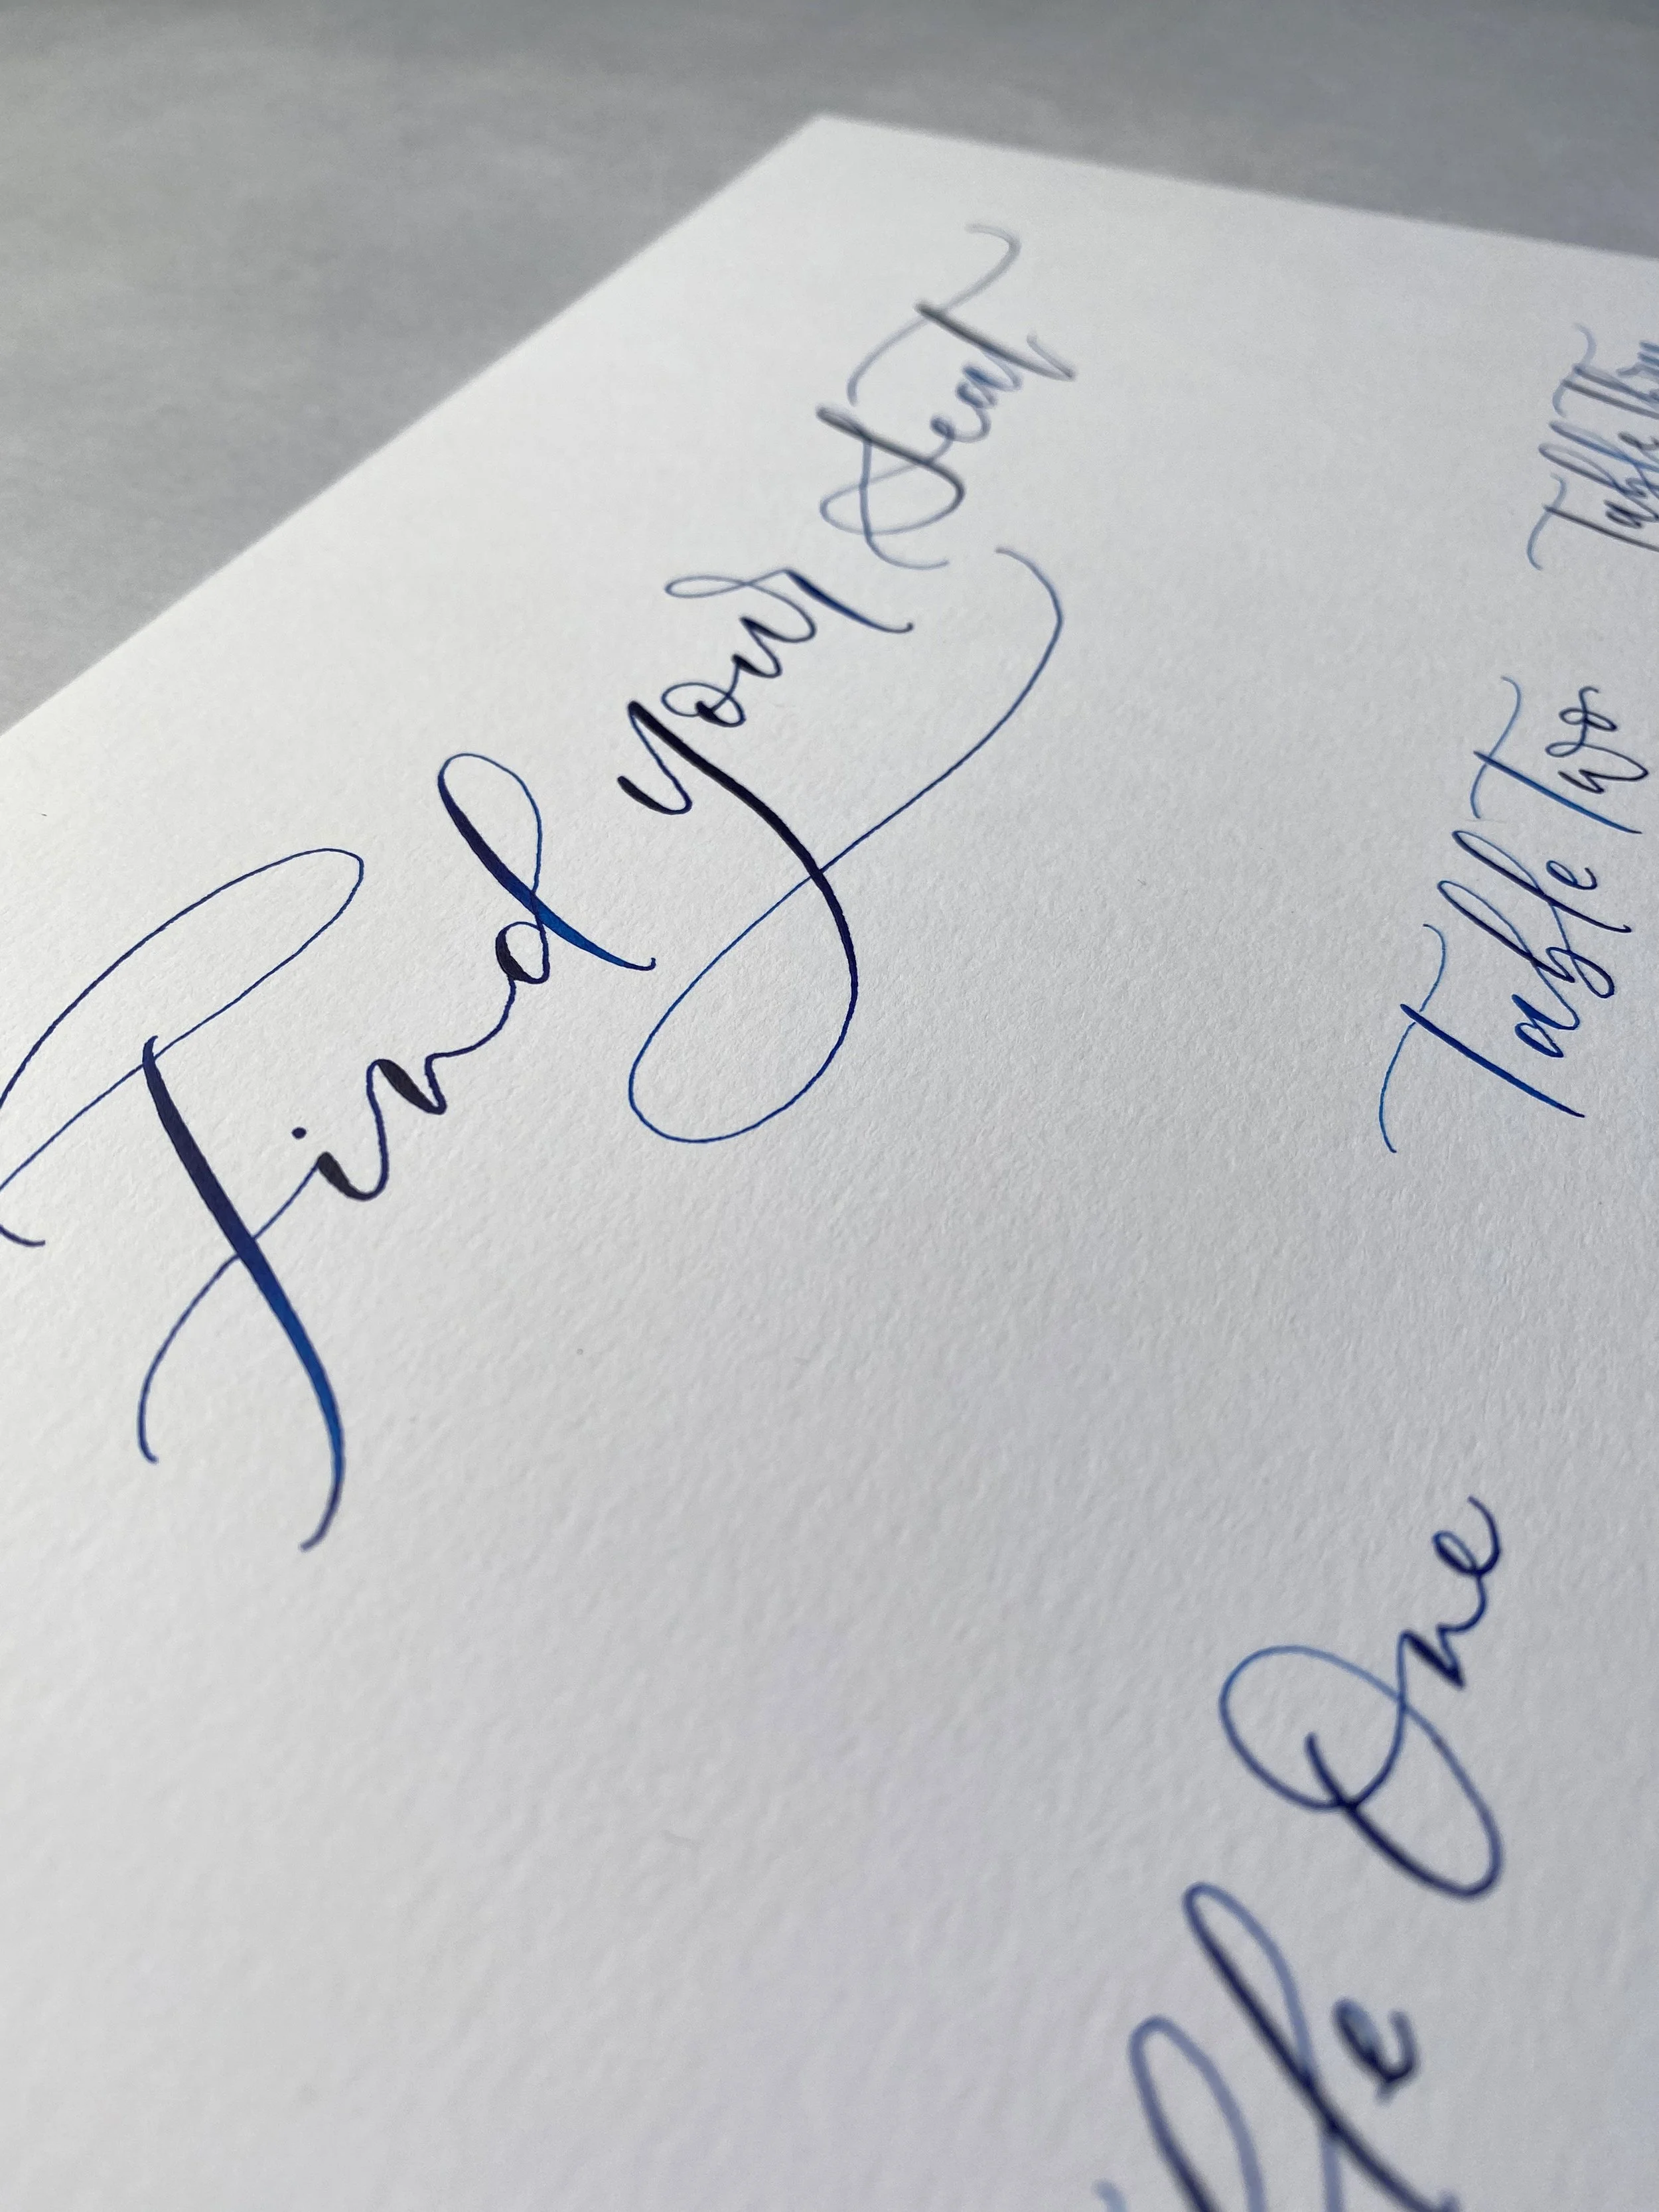 Find your Seat
Table One
Table Two
Table